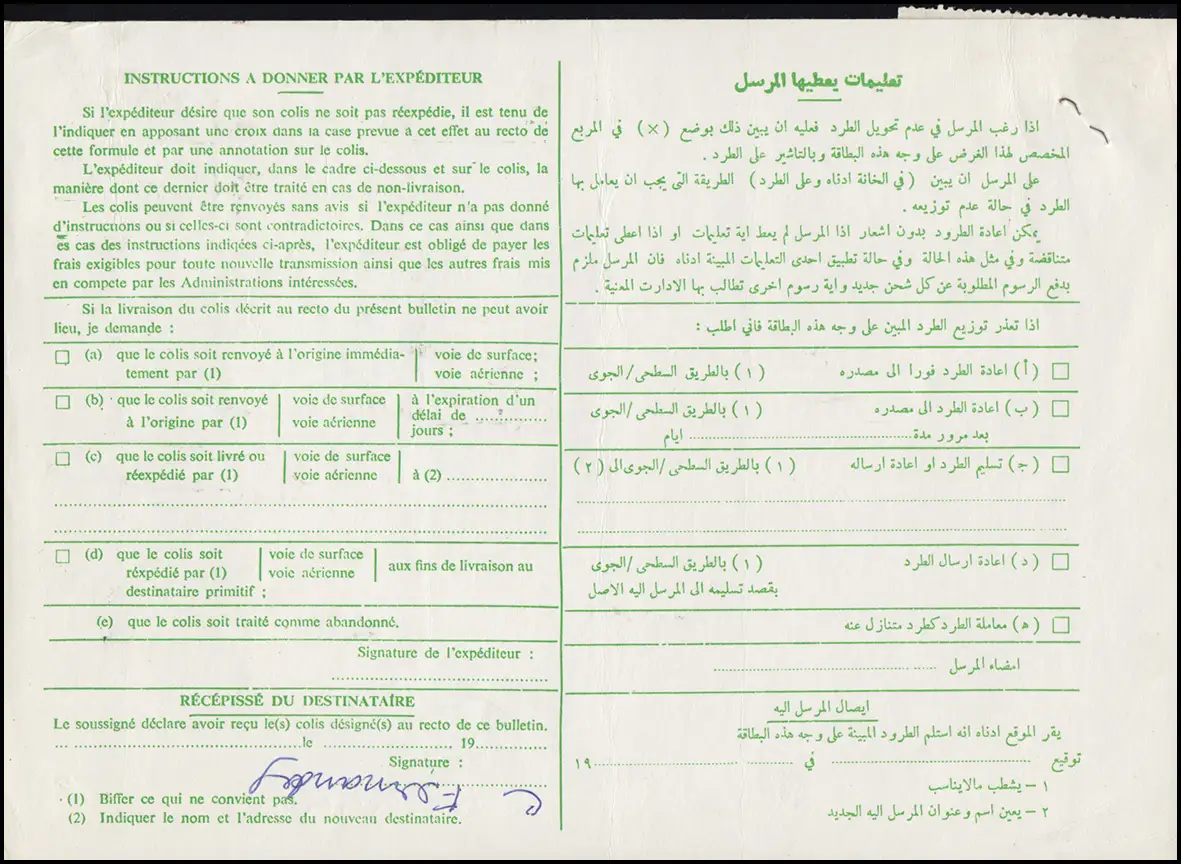 INSTRUCTIONS A DONNER PAR L'EXPÉDITEUR
Si l'expéditeur désire que son colis ne soit pas réexpédie, il est tenu de
l'indiquer en apposant une croix dans la case prevue à cet effet au recto de
cette formule et par une annotation sur le colis.
L'expéditeur doit indiquer, dans le cadre ci-dessous et sur le colis, la
manière dont ce dernier doit être traité en cas de non-livraison.
Les colis peuvent être renvoyés sans avis si l'expéditeur n'a pas donné
d'instructions ou si celles-ci sont contradictoires. Dans ce cas ainsi que dans
es cas des instructions indiqées ci-après, l'expéditeur est obligé de payer les
frais exigibles pour toute nouvelle transmission ainsi que les autres frais mis
en compete par les Administrations intéressées.
Si la livraison du colis décrit au recto du présent bulletin ne peut avoir
lieu, je demande :
(a) que le colis soit renvoyé à l'origine immédia- voie de surface;
tement par (1) voie aérienne ;
(b) que le colis soit renvoyé voie de surface à l'expiration d'un
à l'origine par (1) voie aérienne délai de ............
jours ;
(c) que le colis soit livré ou voie de surface
réexpédié par (1) voie aérienne à (2) ....................
(d) que le colis soit voie de surface
réxpédié par (1) voie aérienne aux fins de livraison au
destinataire primitif ;
(e) que le colis soit traité comme abandonné.
Signature de l'expéditeur :
RÉCÉPISSÉ DU DESTINATAIRE
Le soussigné déclare avoir reçu le(s) colis désigné(s) au recto de ce bulletin.
le .......................... 19..............
Signature :
(1) Biffer ce qui ne convient pas.
(2) Indiquer le nom et l'adresse du nouveau destinataire.
تعليمات يعطيها المرسل
اذا رغب المرسل في عدم تحويل الطرد فعليه ان يبين ذلك بوضع (×) في المربع
المخصص لهذا الغرض على وجه هذه البطاقة وبالتاشير على الطرد .
على المرسل ان يبين (في الخانة ادناه وعلى الطرد) الطريقة التى يجب ان يعامل بها
الطرد في حالة عدم توزيعه .
يمكن اعادة الطرود بدون اشعار اذا المرسل لم يعط اية تعليمات او اذا اعطى تعليمات
متناقضة وفي مثل هذه الحالة وفي حالة تطبيق احدى التعليمات المبينة ادناه فان المرسل ملزم
بدفع الرسوم المطلوبة عن كل شحن جديد واية رسوم اخرى تطالب بها الادارت المعنية .
اذا تعذر توزيع الطرد المبين على وجه هذه البطاقة فاني اطلب :
(أ) اعادة الطرد فورا الى مصدره (١) بالطريق السطحى/الجوى
(ب) اعادة الطرد الى مصدره (١) بالطريق السطحى/الجوى
بعد مرور مدة .................... ايام
(ج) تسليم الطرد او اعادة ارساله (١) بالطريق السطحى/الجوى الى (٢)
(د) اعادة ارسال الطرد (١) بالطريق السطحى/الجوى
بقصد تسليمه الى المرسل اليه الاصل
(ه) معاملة الطرد كطرد متنازل عنه
امضاء المرسل
ايصال المرسل اليه
يقر الموقع ادناه انه استلم الطرود المبينة على وجه هذه البطاقة
توقيع .................... في .................... ١٩
١ – يشطب مالايناسب
٢ – يعين اسم وعنوان المرسل اليه الجديد